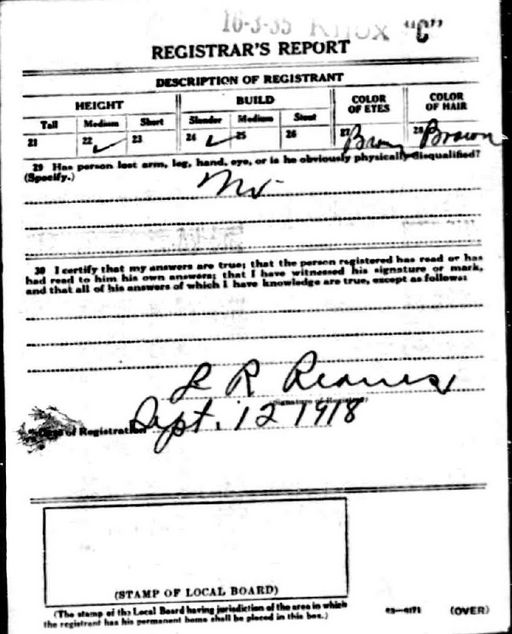 10-3-35 Knox "C"
REGISTRAR'S REPORT
DESCRIPTION OF REGISTRANT
HEIGHT BUILD COLOR OF EYES COLOR OF HAIR
Tall Medium Short Slender Medium Stout
21 22 ✓ 23 24 ✓ 25 26 27 Brown 28 Brown
29 Has person lost arm, leg, hand, eye, or is he obviously physically disqualified?
(Specify.)
No
30 I certify that my answers are true; that the person registered has read or has
had read to him his own answers; that I have witnessed his signature or mark,
and that all of his answers of which I have knowledge are true, except as follows:
R
(Signature of Registrar)
Date of Registration Sept. 12 1918
(STAMP OF LOCAL BOARD)
(The stamp of the Local Board having jurisdiction of the area in which
the registrant has his permanent home shall be placed in this box.)
03—6171 (OVER)